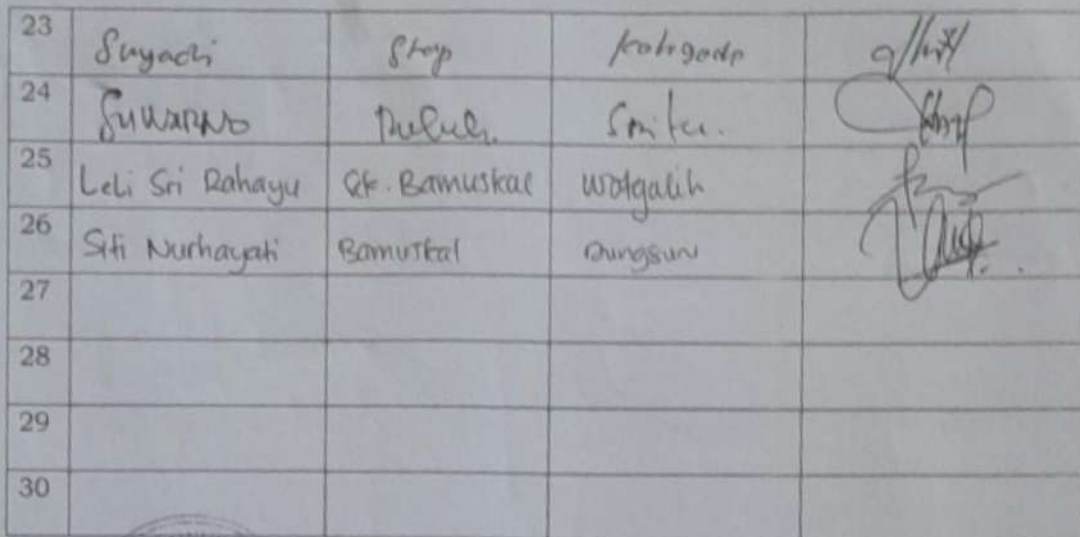 23 Suyadi Stap Kaligade
24 Suwarno Dukuh. Smiku.
25 Leli Sri Rahayu Sek. Bamuskal Wotgalih
26 Siti Nurhayati Bamuskal Dungsuru
27
28
29
30